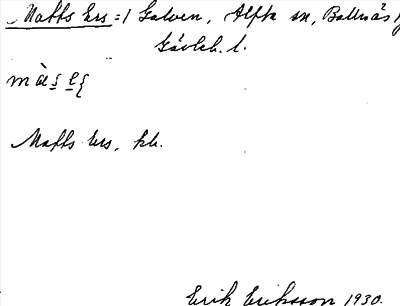 Matts Ers = i Galven, Alfta sn, Bollnäs
Gävleb. l.
Matts Ers, kl.
Erik Eriksson 1930.